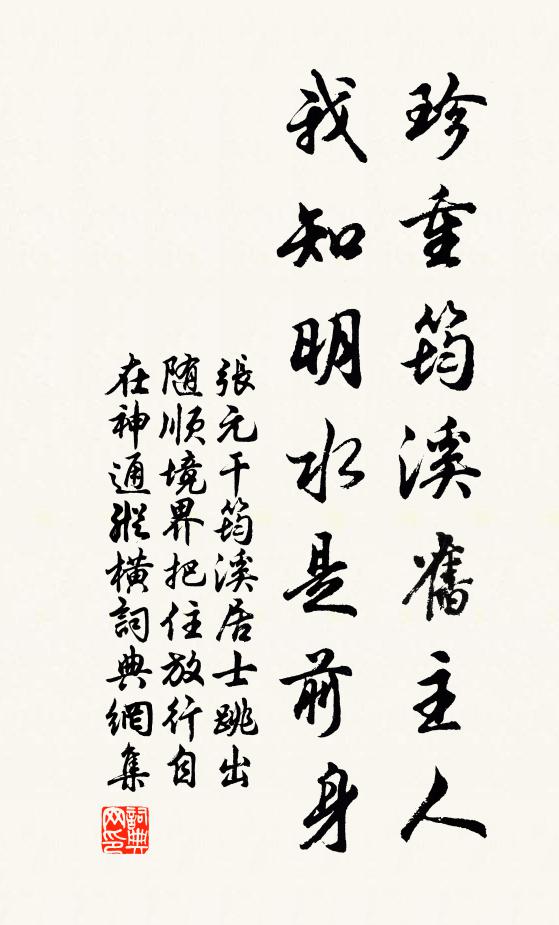 珍重筠溪舊主人
我知明水是前身
張元干筠溪居士跳出
随順境界把住放行自
在神通縱橫詞典網集
詞典网印